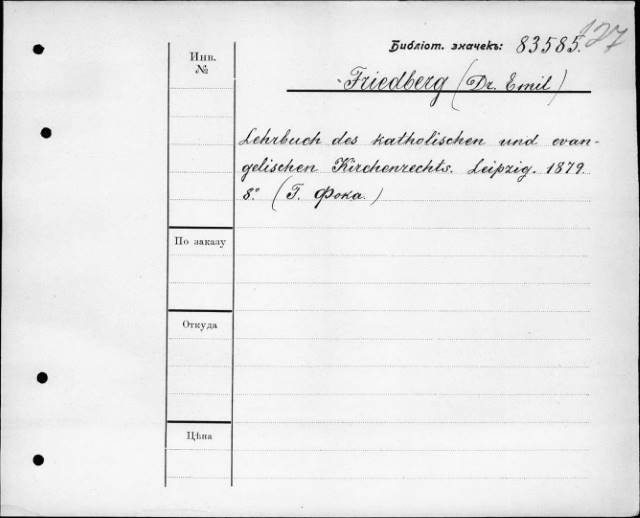 127
Библіот. значекъ: 83585.
Инв.
№
Friedberg (Dr. Emil)
Lehrbuch des katholischen und evan-
gelischen Kirchenrechts. Leipzig. 1879.
8.° (Г. Фока.)
По заказу
Откуда
Цѣна